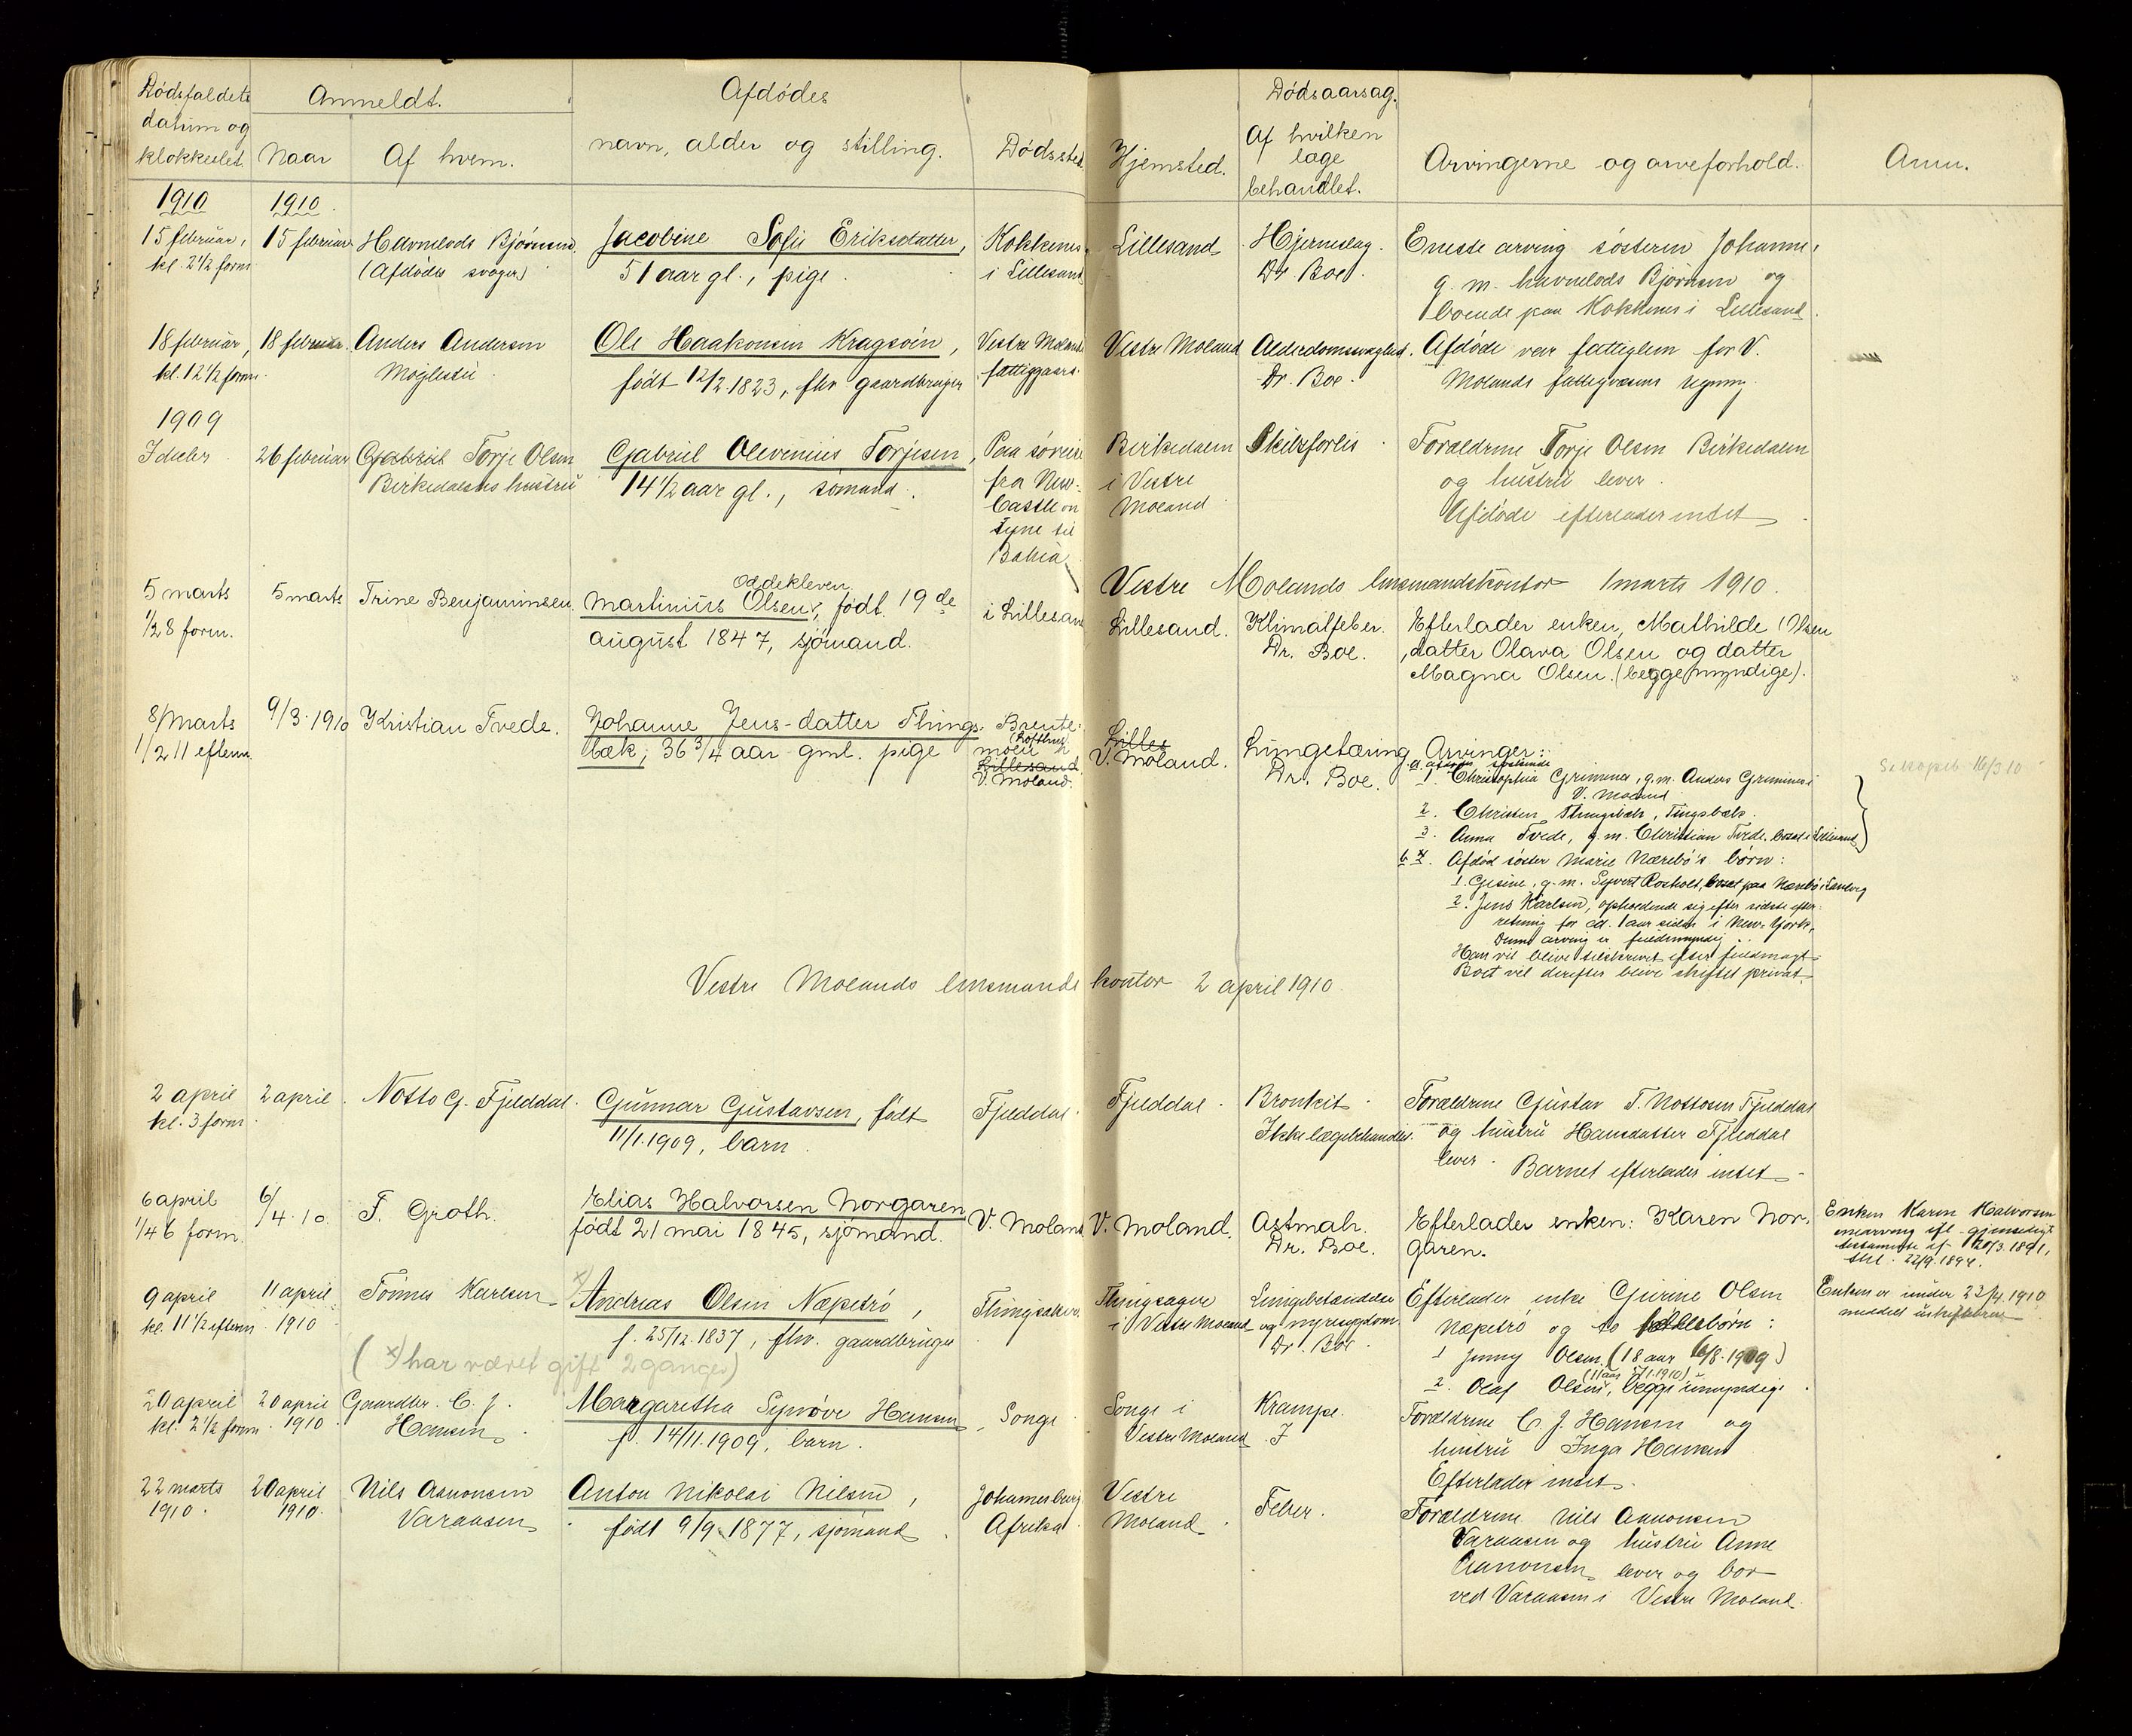 Dødsfaldets
datum og
klokkeslet.
Anmeldt.
Naar
Af hvem.
Afdødes
navn, alder og stilling.
Dødssted.
Hjemsted.
Dødsaarsag.
Af hvilken
læge
behandlet.
Arvingerne og arveforhold.
Anm.
1910
1910
15 februar,
kl. 2 1/2 form
15 februar
Havnelods Bjørnsen
(Afdødes svoger)
Jacobine Sofie Eriksdatter,
51 aar gl., pige.
Kokkenes
i Lillesand
Lillesand
Hjerneslag.
Dr. Boe.
Eneste arving søsteren Johanne,
g. m. havnelods Bjørnsen og
boende paa Kokkenes i Lillesand.
18 februar,
kl. 12 1/2 form.
18 februar.
Anders Andersen
Moglestu
Ole Haakonsen Kragsøen,
født 12/2 1823, fhv. gaardbruger
Vestre Molands
fattiggaard.
Vestre Moland
Alderdomssvaghed.
Dr. Boe.
Afdøde var fattiglem for V.
Molands fattigvæsens regning.
1909
I dec
26 februar
Torje Olsen
Birkedalens hustru
Gabriel Olevinius Torjesen,
14 1/2 aar gl., sømand.
Paa søreise
fra New-
Castle on
Tyne til
Bahia
Birkedalen
i Vestre
Moland
Skibsforlis
Forældrene Torje Olsen Birkedalen
og hustru lever.
Afdøde efterlader intet
Vestre Molands lensmandskontor 1 marts 1910.
5 marts
1/2 8 form.
5 marts
Trine Benjaminsen.
Oddekleven
Martinius Olsen, født 19de
august 1847, sjømand.
i Lillesand
Lillesand.
Klimatfeber.
Dr. Boe.
Efterlader enken, Mathilde Olsen
, datter Olava Olsen og datter
Magna Olsen. (begge myndige).
8/marts
1/2 11 efterm.
9/3. 1910
Kristian Tvede.
Johanne Jens-datter Things-
bæk, 36 3/4 aar gml. pige
Brente-
moen
Lillesand
V. Moland.
Lilles
V. Moland.
Lungetæring
Dr. Boe.
Arvinger:
a. afdødes søskende
1. Christophia Grimnes, g.m. Anders Grimnes i
V. Moland
2. Christen Thingsbæk, Tingsbæk.
3. Anna Tvede, g.m. Christian Tvede, bosat i Lillesand
b 4. Afdød søster Marie Nærebø's børn:
1. Gesine, g.m. Syvert Rosholt, bosat paa Nærebø i Landvig
2. Jens Karlsen, opholdende sig efter sidste efter-
retning for cd. 1 aar siden i New-York,
Denne arving er fuldmyndig.
Han vil blive tilskrevet efter fuldmagt
Boet vil derefter blive skiftet privat.
16/3 10
Vestre Molands lensmandskontor 2 april 1910.
2 april
kl. 3 form.
2 april.
Notto G. Fjelddal.
Gunnar Gustavsen, født
11/1.1909, barn.
Fjelddal
Fjelddal.
Bronkit.
Ikke lægebehandlet.
Forældrene Gustav T. Nottosen Fjelddal
og hustru Hansdatter Fjelddal
lever. Barnet efterlader intet
6 april
1/4 6 form.
6/4. 10.
F. Groth.
Elias Halvorsen Norgaren
født 21 mai 1845, sjømand.
V. Moland
V. Moland.
Astmah.
Dr. Boe.
Efterlader enken: Karen Nor-
garen.
Enken Karen Halvorsen
enearving ifl. gjensidigt
testamente af 20/3.1891,
thl. 22/9.1894.
9 april
kl. 11 1/2 efterm
11 april
1910
Tønnes Karlsen
x) Andreas Olsen Næpetrø,
f. 25/12.1837, fhv. gaardbruger
( x) har været gift 2 gange)
Thingsaker
Thingsager
i Vestre Moland
Lungebetændelse
og nyresygdom
Dr. Boe
Efterlader enke Gurine Olsen
Næpetrø og to fællesbørn:
1 Jenny Olsen (18 aar 6/8.1909)
(11 aar 5/1.1910)
2. Olaf Olsen, begge umyndige.
Enken er under 23/4 1910
meddelt uskiftebrev
20 april
kl. 2 1/2 form.
20 april
1910
Gaardbr. C. J.
Hansen
Margaretha Synøve Hansen
f. 14/11.1909, barn.
Songe
Songe i
Vestre Moland
Krampe.
Forældrene C. J. Hansen og
hustru Inga Hansen
Efterlader intet.
22 marts
1910.
20 april
1910.
Nils Aanonsen
Varaasen
Anton Nikolai Nilsen,
født 9/9 1877, sjømand
Johannesburg
Afrika
Vestre
Moland
Feber.
Forældrene Nils Aanonsen
Varaasen og hustru Anne
Aanonsen lever og bor
ved Varaasen i Vestre Moland